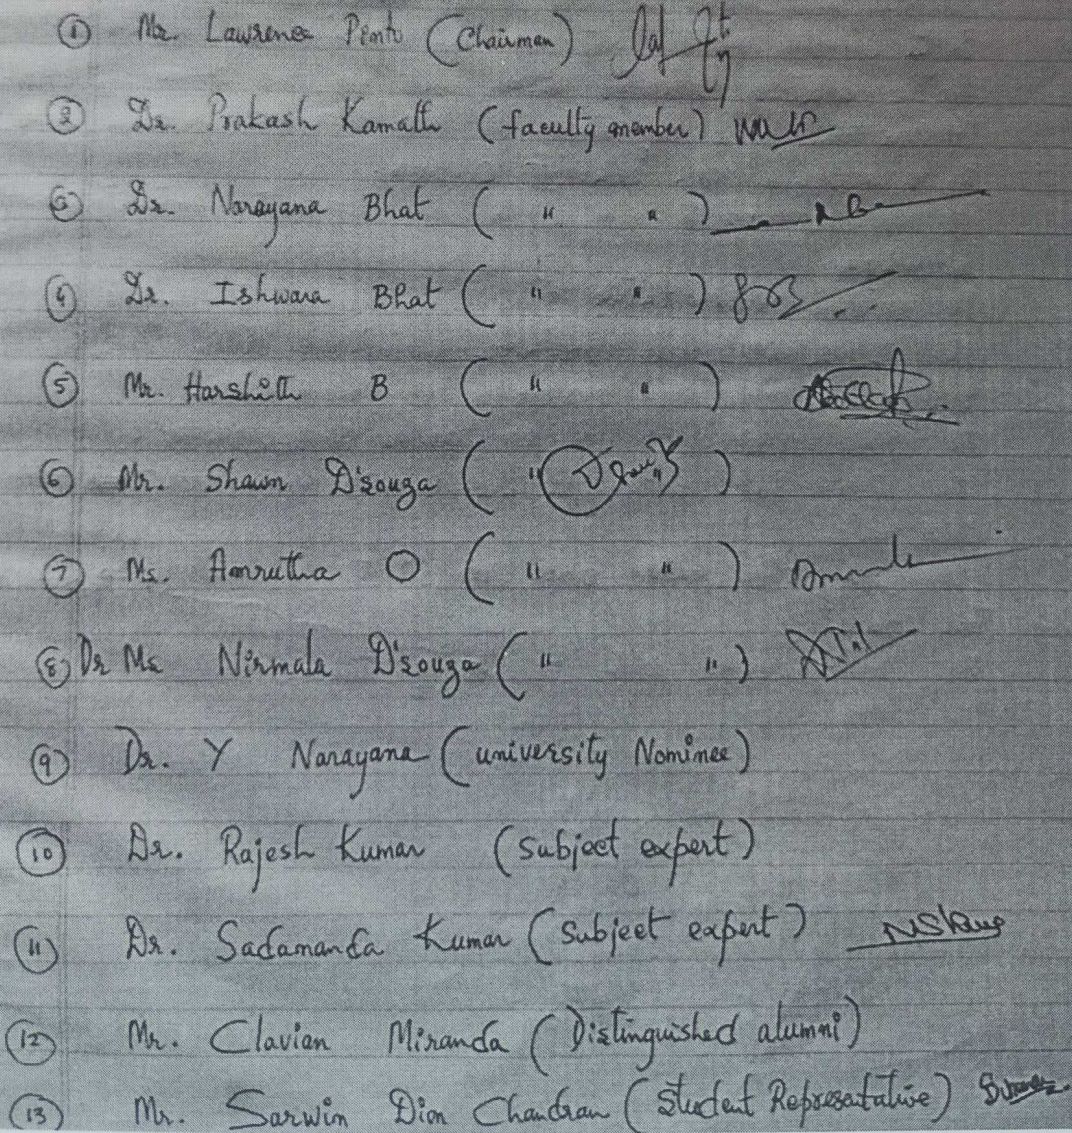 ① Mr. Lawrence Pinto (Chairman)
② Dr. Prakash Kamath (faculty member)
③ Dr. Narayana Bhat ( " " )
④ Dr. Ishwara Bhat ( " " )
⑤ Mr. Harshith B ( " " )
⑥ Mr. Shawn D'souza ( " " )
⑦ Ms. Amrutha O ( " " )
⑧ Dr Ms Nirmala D'souza ( " " )
⑨ Dr. Y Narayana (university Nominee)
⑩ Dr. Rajesh Kumar (Subject expert)
⑪ Dr. Sadananda Kumar (Subject expert)
⑫ Mr. Clavian Miranda (Distinguished alumni)
⑬ Mr. Sarwin Dion Chandran (Student Represetative)